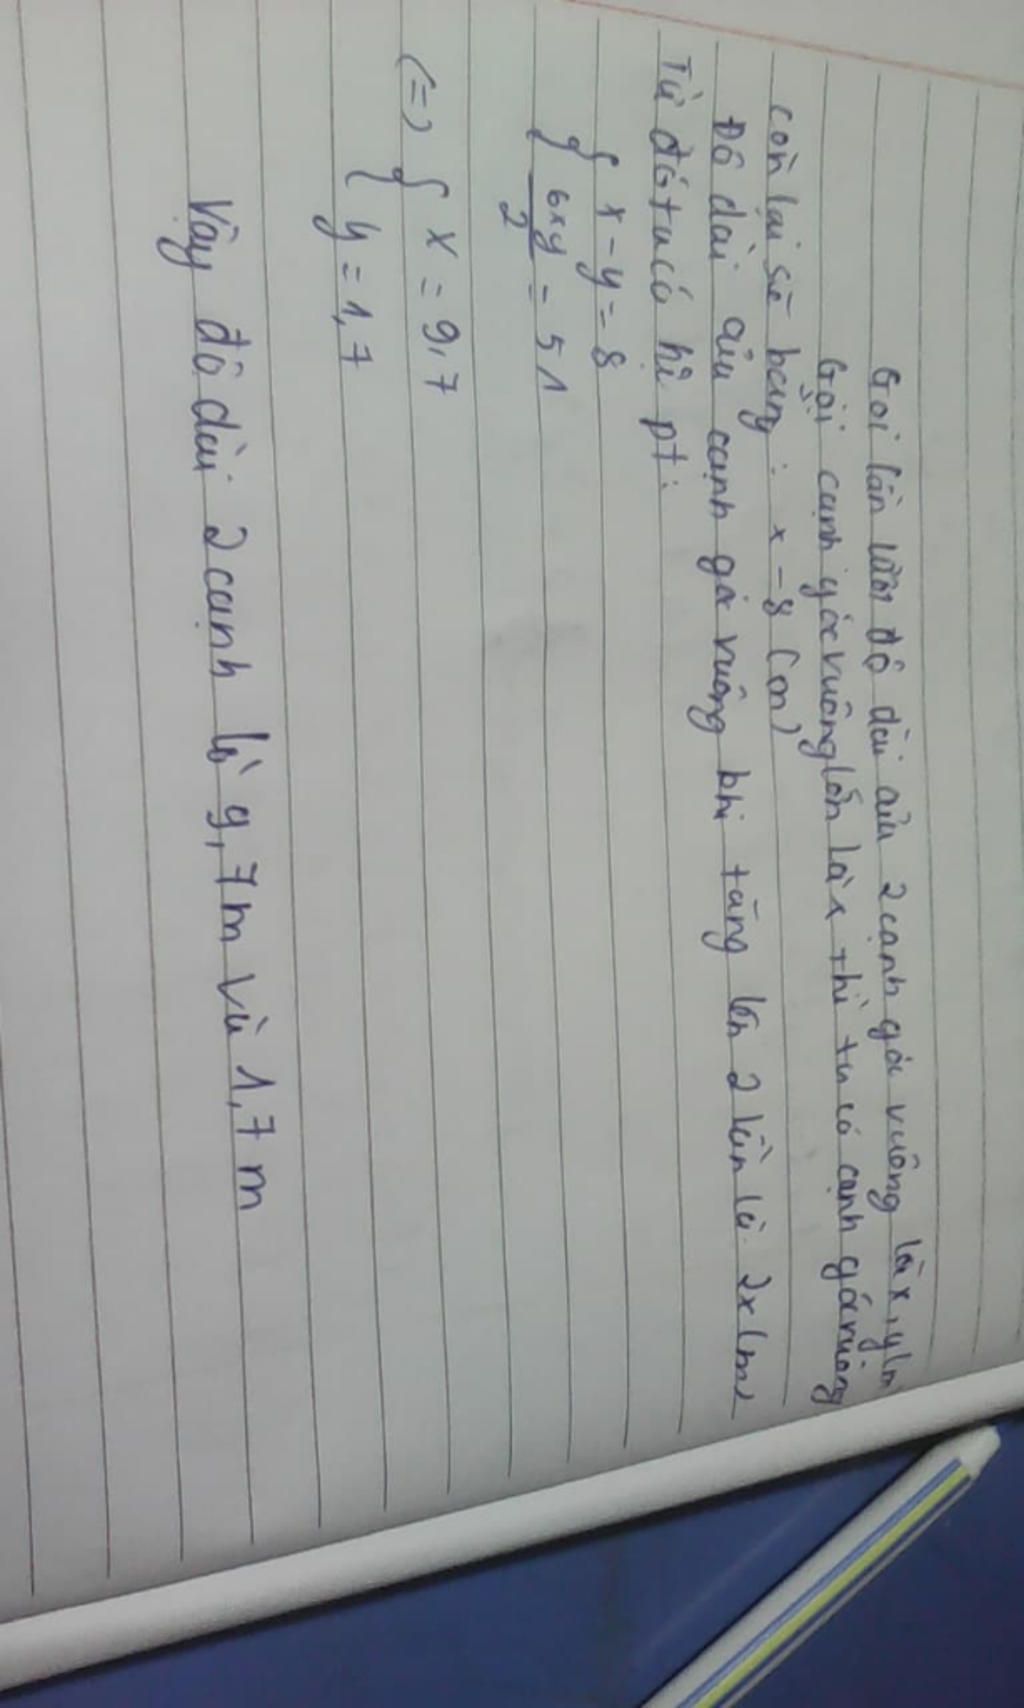 Gọi lần lượt độ dài của 2 cạnh góc vuông là x, y (m
Gọi cạnh góc vuông lớn là x thì ta có cạnh góc vuông
còn lại sẽ bằng : x - 8 (m)
Độ dài của cạnh góc vuông khi tăng lên 2 lần là 2x (m)
Từ đó ta có hệ pt :
{ x - y = 8
{ 6xy / 2 = 51
(=) { x = 9,7
{ y = 1,7
Vậy độ dài 2 cạnh là 9,7m và 1,7 m